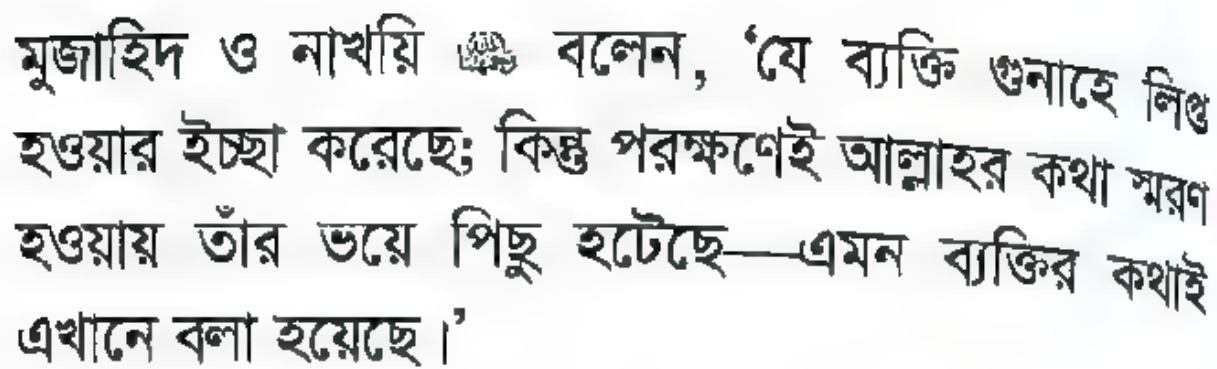 মুজাহিদ ও নাখয়ি বলেন, ‘যে ব্যক্তি গুনাহে লিপ্ত
হওয়ার ইচ্ছা করেছে; কিন্তু পরক্ষণেই আল্লাহর কথা স্মরণ
হওয়ায় তাঁর ভয়ে পিছু হটেছে—এমন ব্যক্তির কথাই
এখানে বলা হয়েছে।’